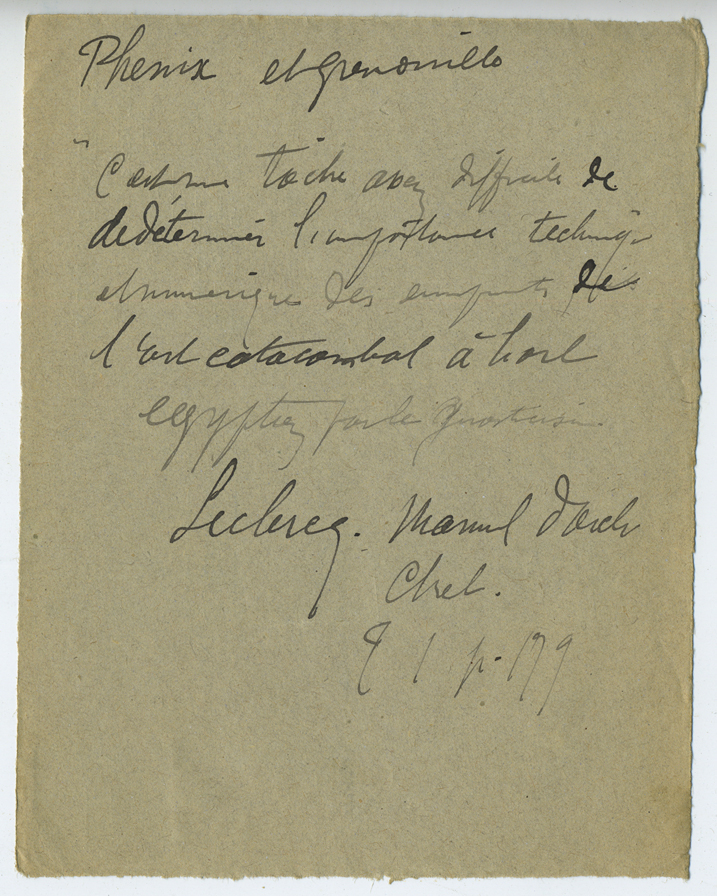 Phenix et grenouille
"C'est une tâche assez difficile de
dedéterminer l'importance techniq
et numerique des emprunts de
l'art catacombal à l'art
egyptien par le
Leclercq. Manuel d'arch
Chret.
T 1 p. 179